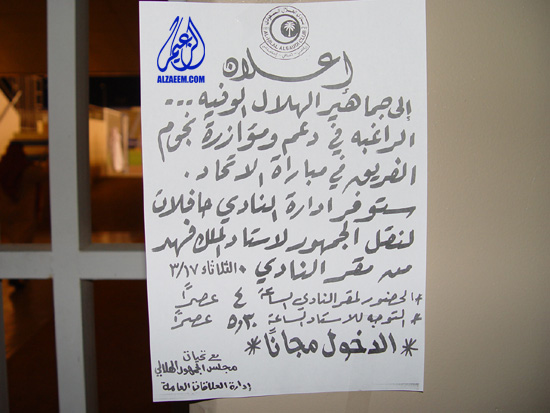 الزعيم
ALZAEEM.COM
ALHILAL ALSAUDI CLUB
إعلان
إلى جماهير الهلال الوفيه...
الراغبه في دعم ومؤازرة نجوم
الفريق في مباراة الاتحاد.
ستوفر ادارة النادي حافلات
لنقل الجمهور لاستاد الملك فهد
من مقر النادي • الثلاثاء ٣/١٧
* الحضور لمقر النادي الساعة ٤ عصرًا
* التوجه للاستاد الساعة ٥,٣٠ عصرًا
* الدخول مجانًا *
مع تحيات
مجلس الجمهور الهلالي
إدارة العلاقات العامة